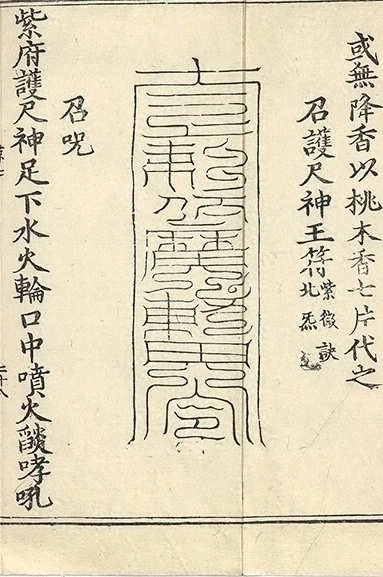 或無降香以桃木香七片代之
召護尺神王符
紫微訣
北炁
召咒
紫府護尺神足下水火輪口中噴火燄哮吼